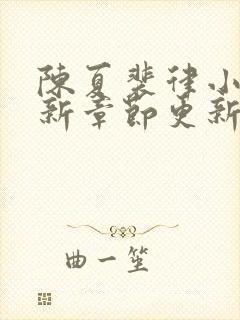 陳夏裴律小
新章節更新
曲一笙